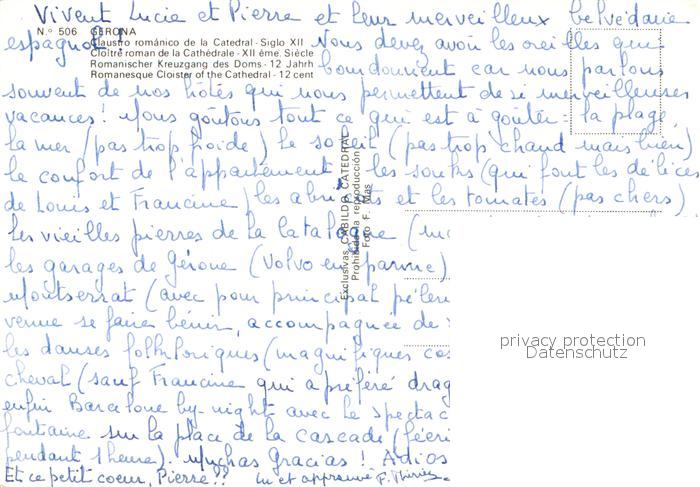 Vivent Lucie et Pierre et leur merveilleux belvédaire
espagnol !
N.º 506 GERONA
Claustro románico de la Catedral - Siglo XII
Cloître roman de la Cathédrale - XII ème. Siècle
Romanischer Kreuzgang des Doms - 12 Jahrh
Romanesque Cloister of the Cathedral - 12 cent
Nous devez avoir les oreilles qui
bourdonnent car nous parlons
souvent de nos hôtes qui nous permettent de si merveilleuses
vacances ! Nous goûtons tout ce qui est à goûter : la plage,
la mer (pas trop froide) le soleil (pas trop chaud mais bien)
le confort de l'appartement, les souks (qui font les délices
de Louis et Francine) les abricots et les tomates (pas chers)
les vieilles pierres de la Catalogne
les garages de Gérone (Volvo en panne)
Montserrat (avec pour principal
venue se faire bénir, accompagnée de
les danses folkloriques (magnifiques
cheval (sauf Francine qui a préféré
enfin Barcelone by-night avec le
fontaine sur la place de la cascade
pendant 1 heure). Muchas Gracias ! Adios
Et ce petit coeur, Pierre ?? Lu et approuvé
Exclusivas CABILDO CATEDRAL
Prohibida la reproducción
Foto F. Mas
privacy protection
Datenschutz